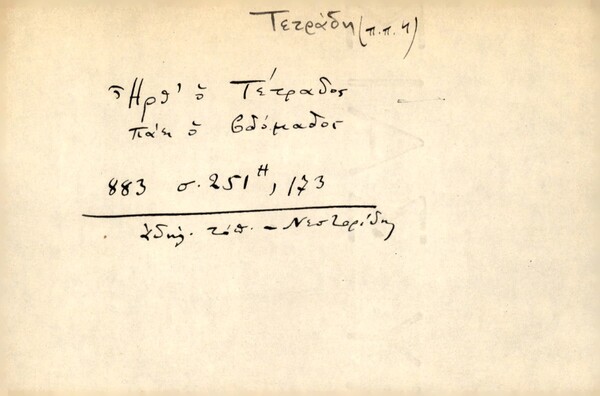 Τετράδη (π.π. 4)
Ἦρθ' ὁ Τέτραδος
πάει ὁ βδόμαδος
883 σ. 251Η, 173
Ἀδήλ. τόπ. – Νεστορίδη